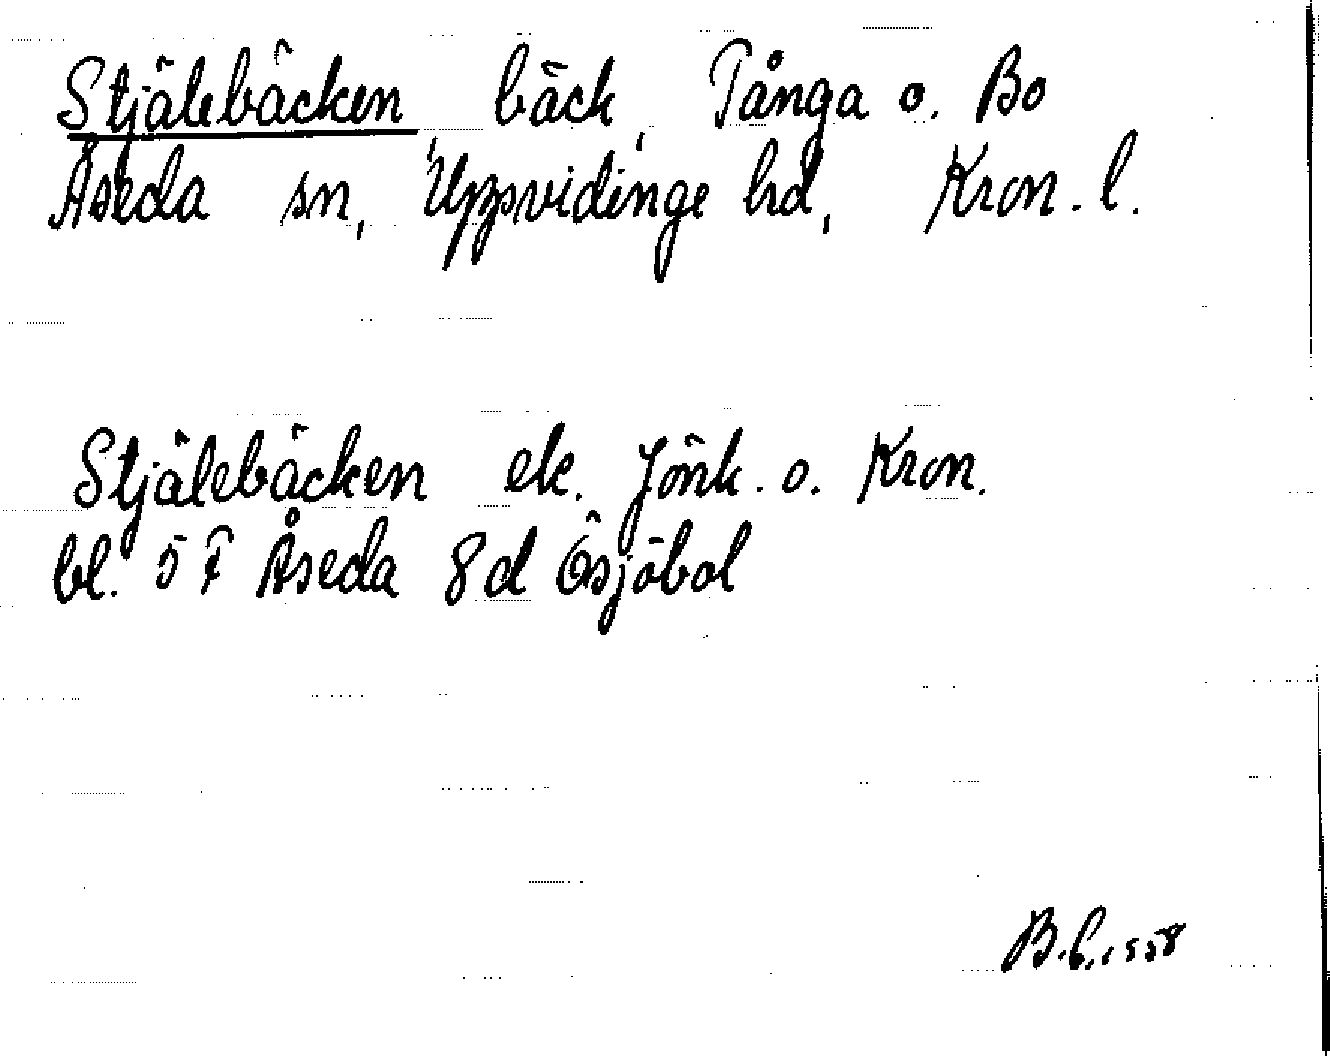 Stjälebäcken, bäck, Tånga o. Bo
Åseda sn, Uppvidinge hd, Kron. l.
Stjälebäcken ek. Jönk. o. Kron.
bl. 5 F Åseda 8d Ösjöbol